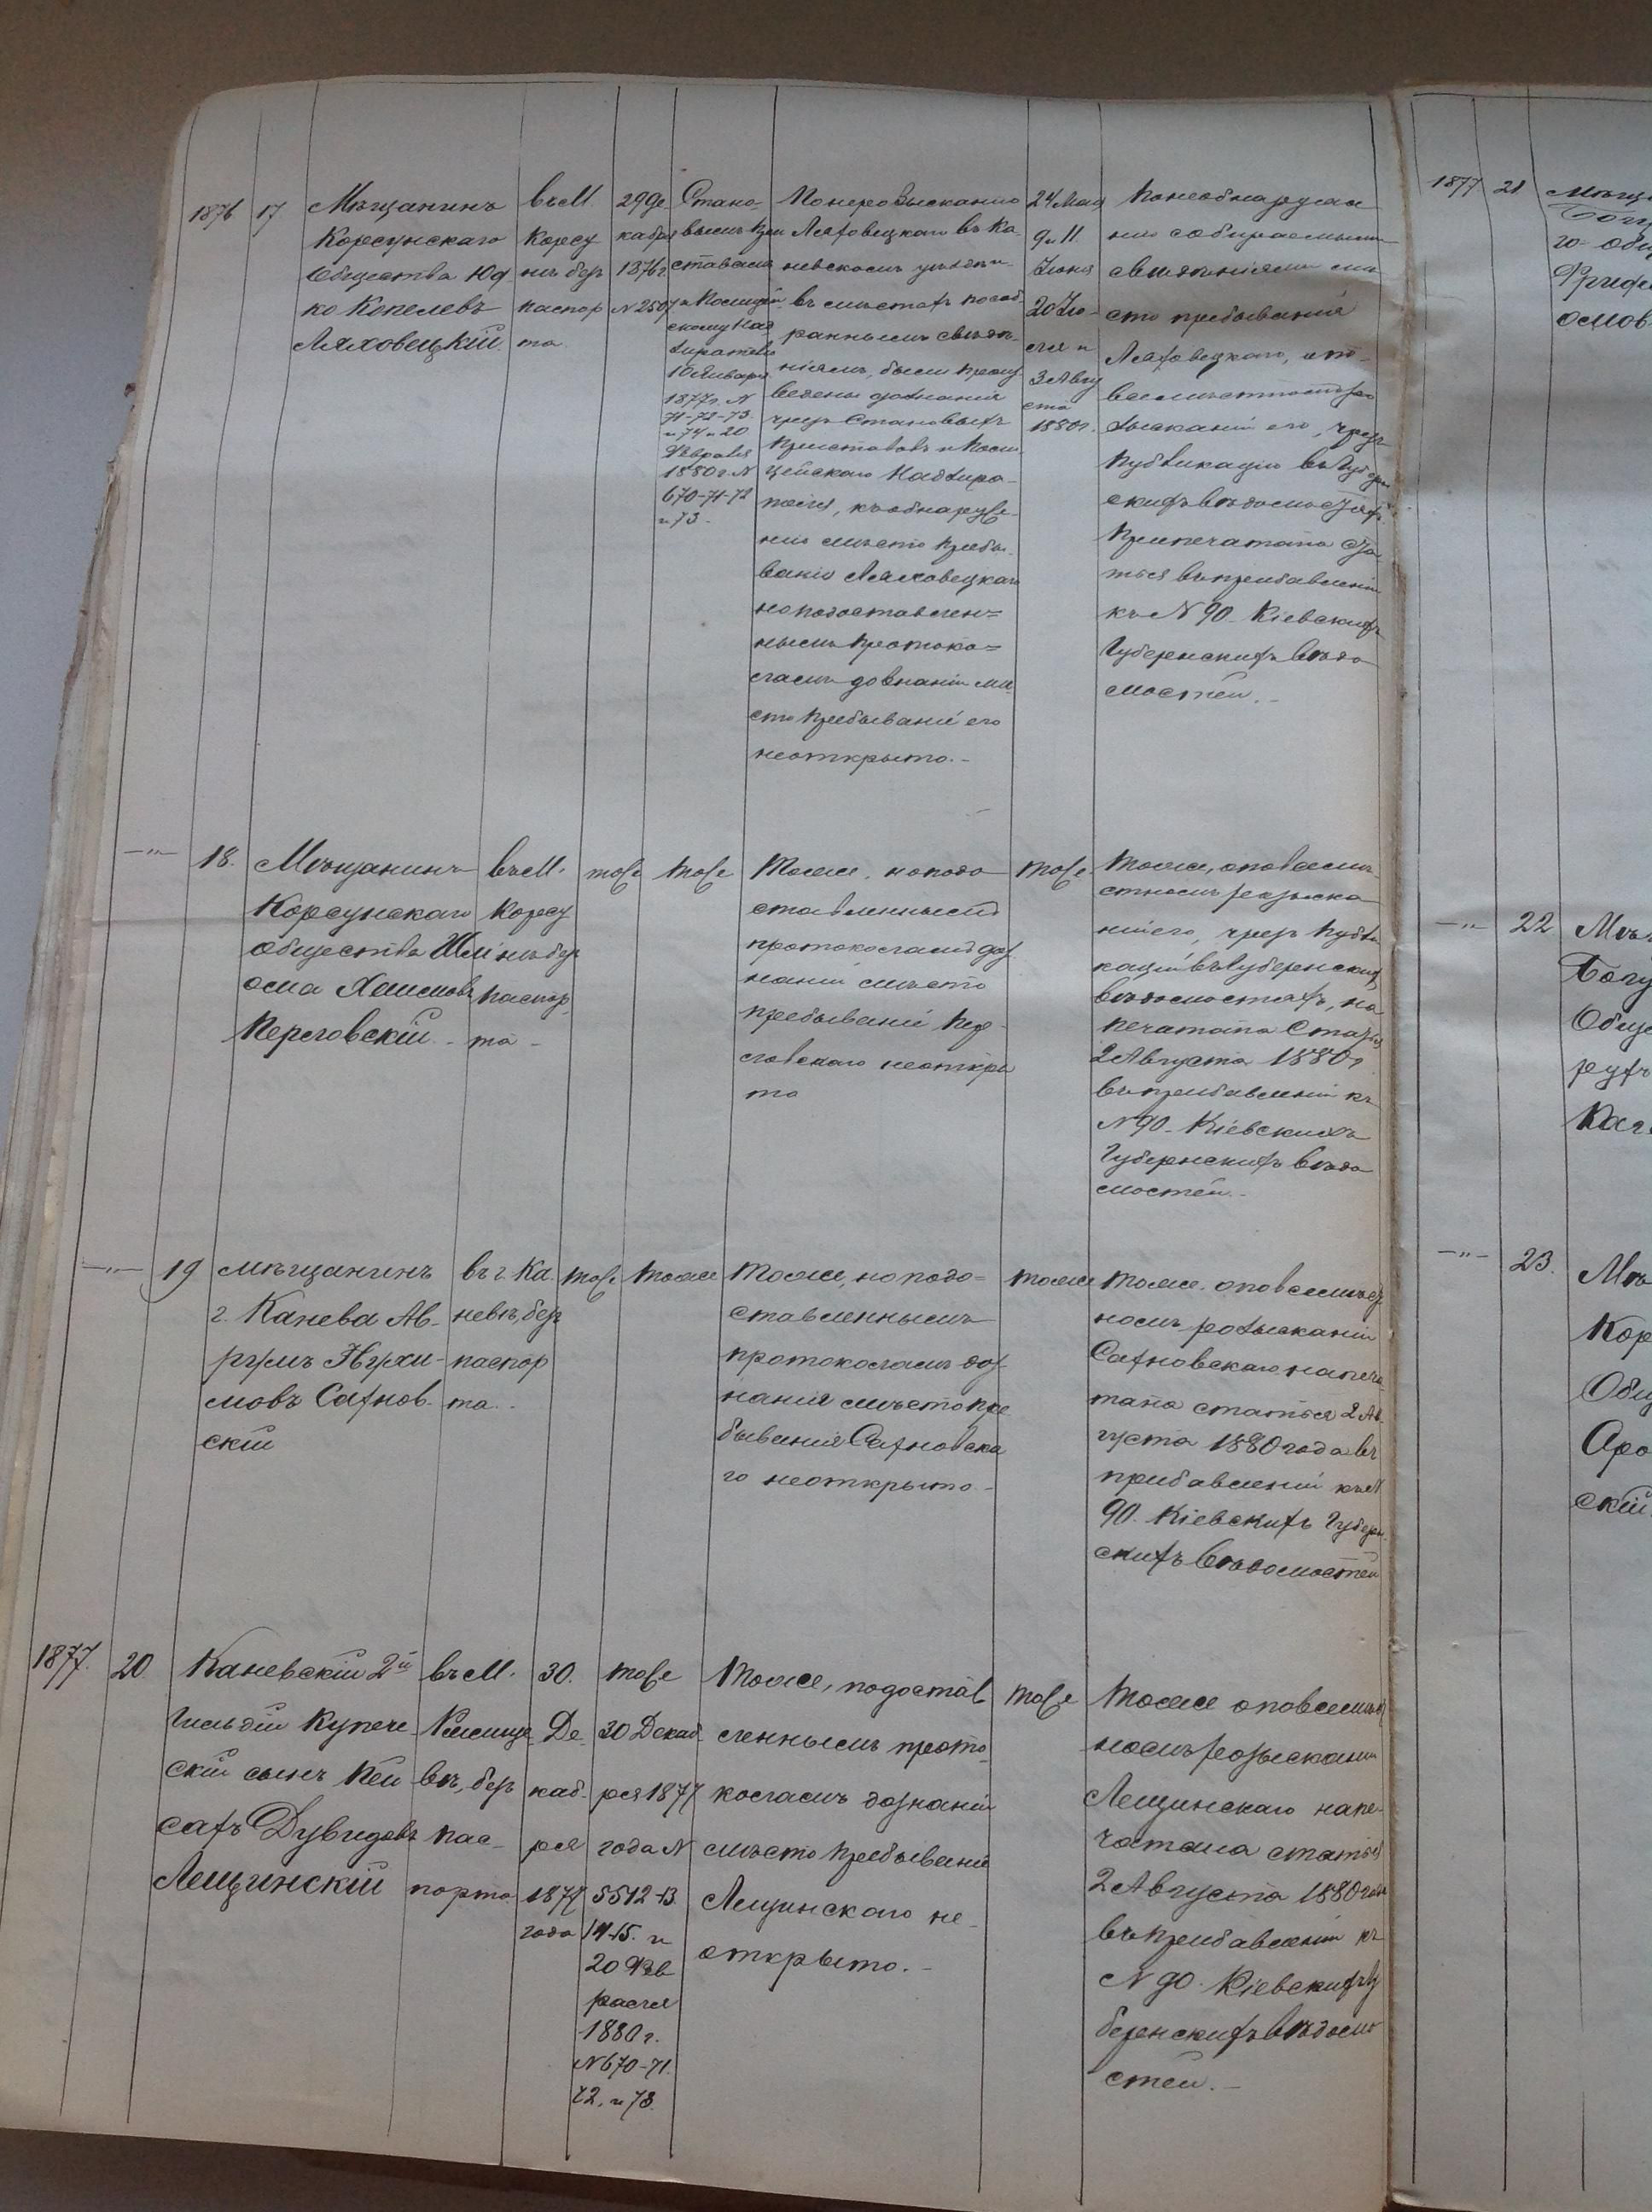 1876
17
Мѣщанинъ
Корсунскаго
Общества Юд
ко Копелевъ
Ляховецкій.
въ М.
Корсу
нѣ безъ
паспор
та
29 Де
кабря
1876 г.
№ 2507
Стано-
вымъ При
ставамъ
и Полицей
скому Над
зирателю
10 Января
1877 г. №
71-72-73.
и 74 и 20
Февраля
1880 г. №
670-71-72
и 73.
Ляховецкаго въ Ка
невскомъ уѣздѣ и
въ мѣстахъ по соб
раннымъ свѣдѣ-
ніямъ, были произ
ведены дознанія
чрезъ Становыхъ
Приставовъ и Поли
цейскаго Надзира-
теля, къ обнаруже-
нію мѣсто пребы-
ванію Ляховецкаго
но по доставлен=
нымъ протоко=
ламъ дознаній мѣ
сто пребываніе его
не открыто.-
24 Мая
9 и 11.
Іюня
20 Ію-
ля и
3 Авгу
ста
1880 г.
По необнаруже
нію собираемыми
свѣдѣніями мѣ
сто пребыванія
Ляховецкаго, о по-
всемѣстномъ ро
зысканіи его, чрезъ
публикацію въ Губерн
скихъ вѣдомостяхъ
Припечатана Ста
тья въ прибавленіи
къ № 90 Кіевскихъ
Губернскихъ вѣдо
мостей.-
—"—
18.
Мѣщанинъ
Корсунскаго
общества Шлі
ома Хаимовъ
Перговскій.-
въ М.
Корсу
нѣ безъ
паспор
та -
тоже
тоже
Тоже, но по до
ставленнымъ
протоколамъ доз
наній мѣсто
пребываніе Пер-
говскаго не откры
то
тоже
Тоже, о повсемѣ
стномъ розыска
ніи его, чрезъ публи
кацій въ Губернских
вѣдомостяхъ, на
печатана Статья
2 Августа 1880 г
въ прибавленіи къ
№ 90 Кіевскихъ
Губернскихъ вѣдо
мостей.-
—"—
19
мѣщанинъ
г. Канева Ав-
румъ Нухи-
мовъ Сахнов-
скій
въ г. Ка
невѣ, безъ
паспор
та.
тоже
тоже
Тоже, но по до=
ставленнымъ
протоколамъ доз
нанія мѣсто пре
быванія Сахновска
го не открыто.-
тоже
Тоже. о повсемѣст
номъ розысканіи
Сахновскаго напеча
тана статья 2 Ав
густа 1880 года въ
прибавленіи къ №
90. Кіевскихъ Губерн
скихъ вѣдомостей
1877.
20.
Каневскій 2й
Гильдіи Купече
скій сынъ Пей
сахъ Дувидовъ
Лещинскій
въ М.
вѣ, безъ
пас-
порта
30.
Де
каб-
ря
1877
года
тоже
30 Декаб
ря 1877
года №
5512-13.
14-15. и
20 Фев
раля
1880 г.
№ 670-71.
72. и 73.
Тоже, по достав
леннымъ прото-
коламъ дознаній
мѣсто пребываніе
Лещинскаго не-
открыто.-
тоже
Тоже о повсемѣст
номъ розысканіи
Лещинскаго напе-
чатана статья
2 Августа 1880 года
въ прибавленіи къ
№ 90. Кіевскихъ Гу
бернскихъ вѣдомо
стей.-
1877
21
22
23.
Кор
Общ
Аро
скій